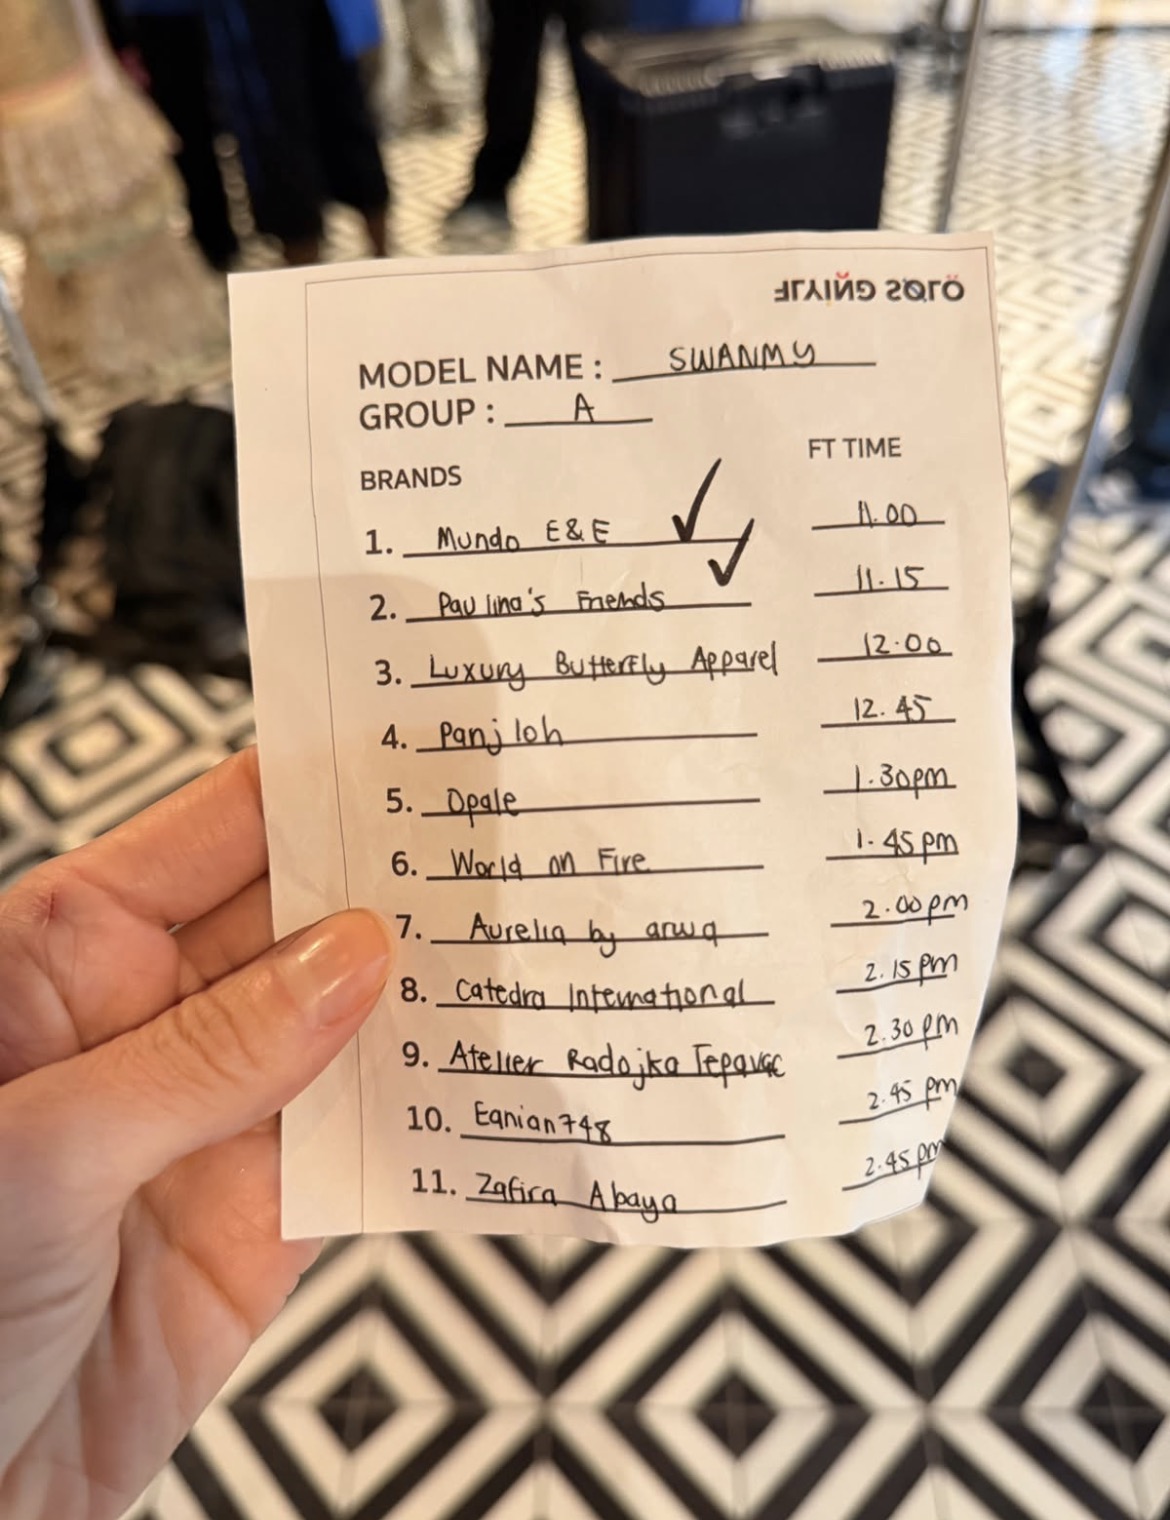 FLYING SOLO
MODEL NAME : SWANMY
GROUP : A
BRANDS FT TIME
1. Mundo E&E ✓ 11.00
2. Paulina's Friends ✓ 11.15
3. Luxury Butterfly Apparel 12.00
4. Panj loh 12.45
5. Opale 1.30pm
6. World on Fire 1.45pm
7. Aurelia by arwa 2.00pm
8. Catedra International 2.15pm
9. Atelier Radojka Tepavac 2.30pm
10. Eqnian748 2.45 pm
11. Zafira Abaya 2.45pm